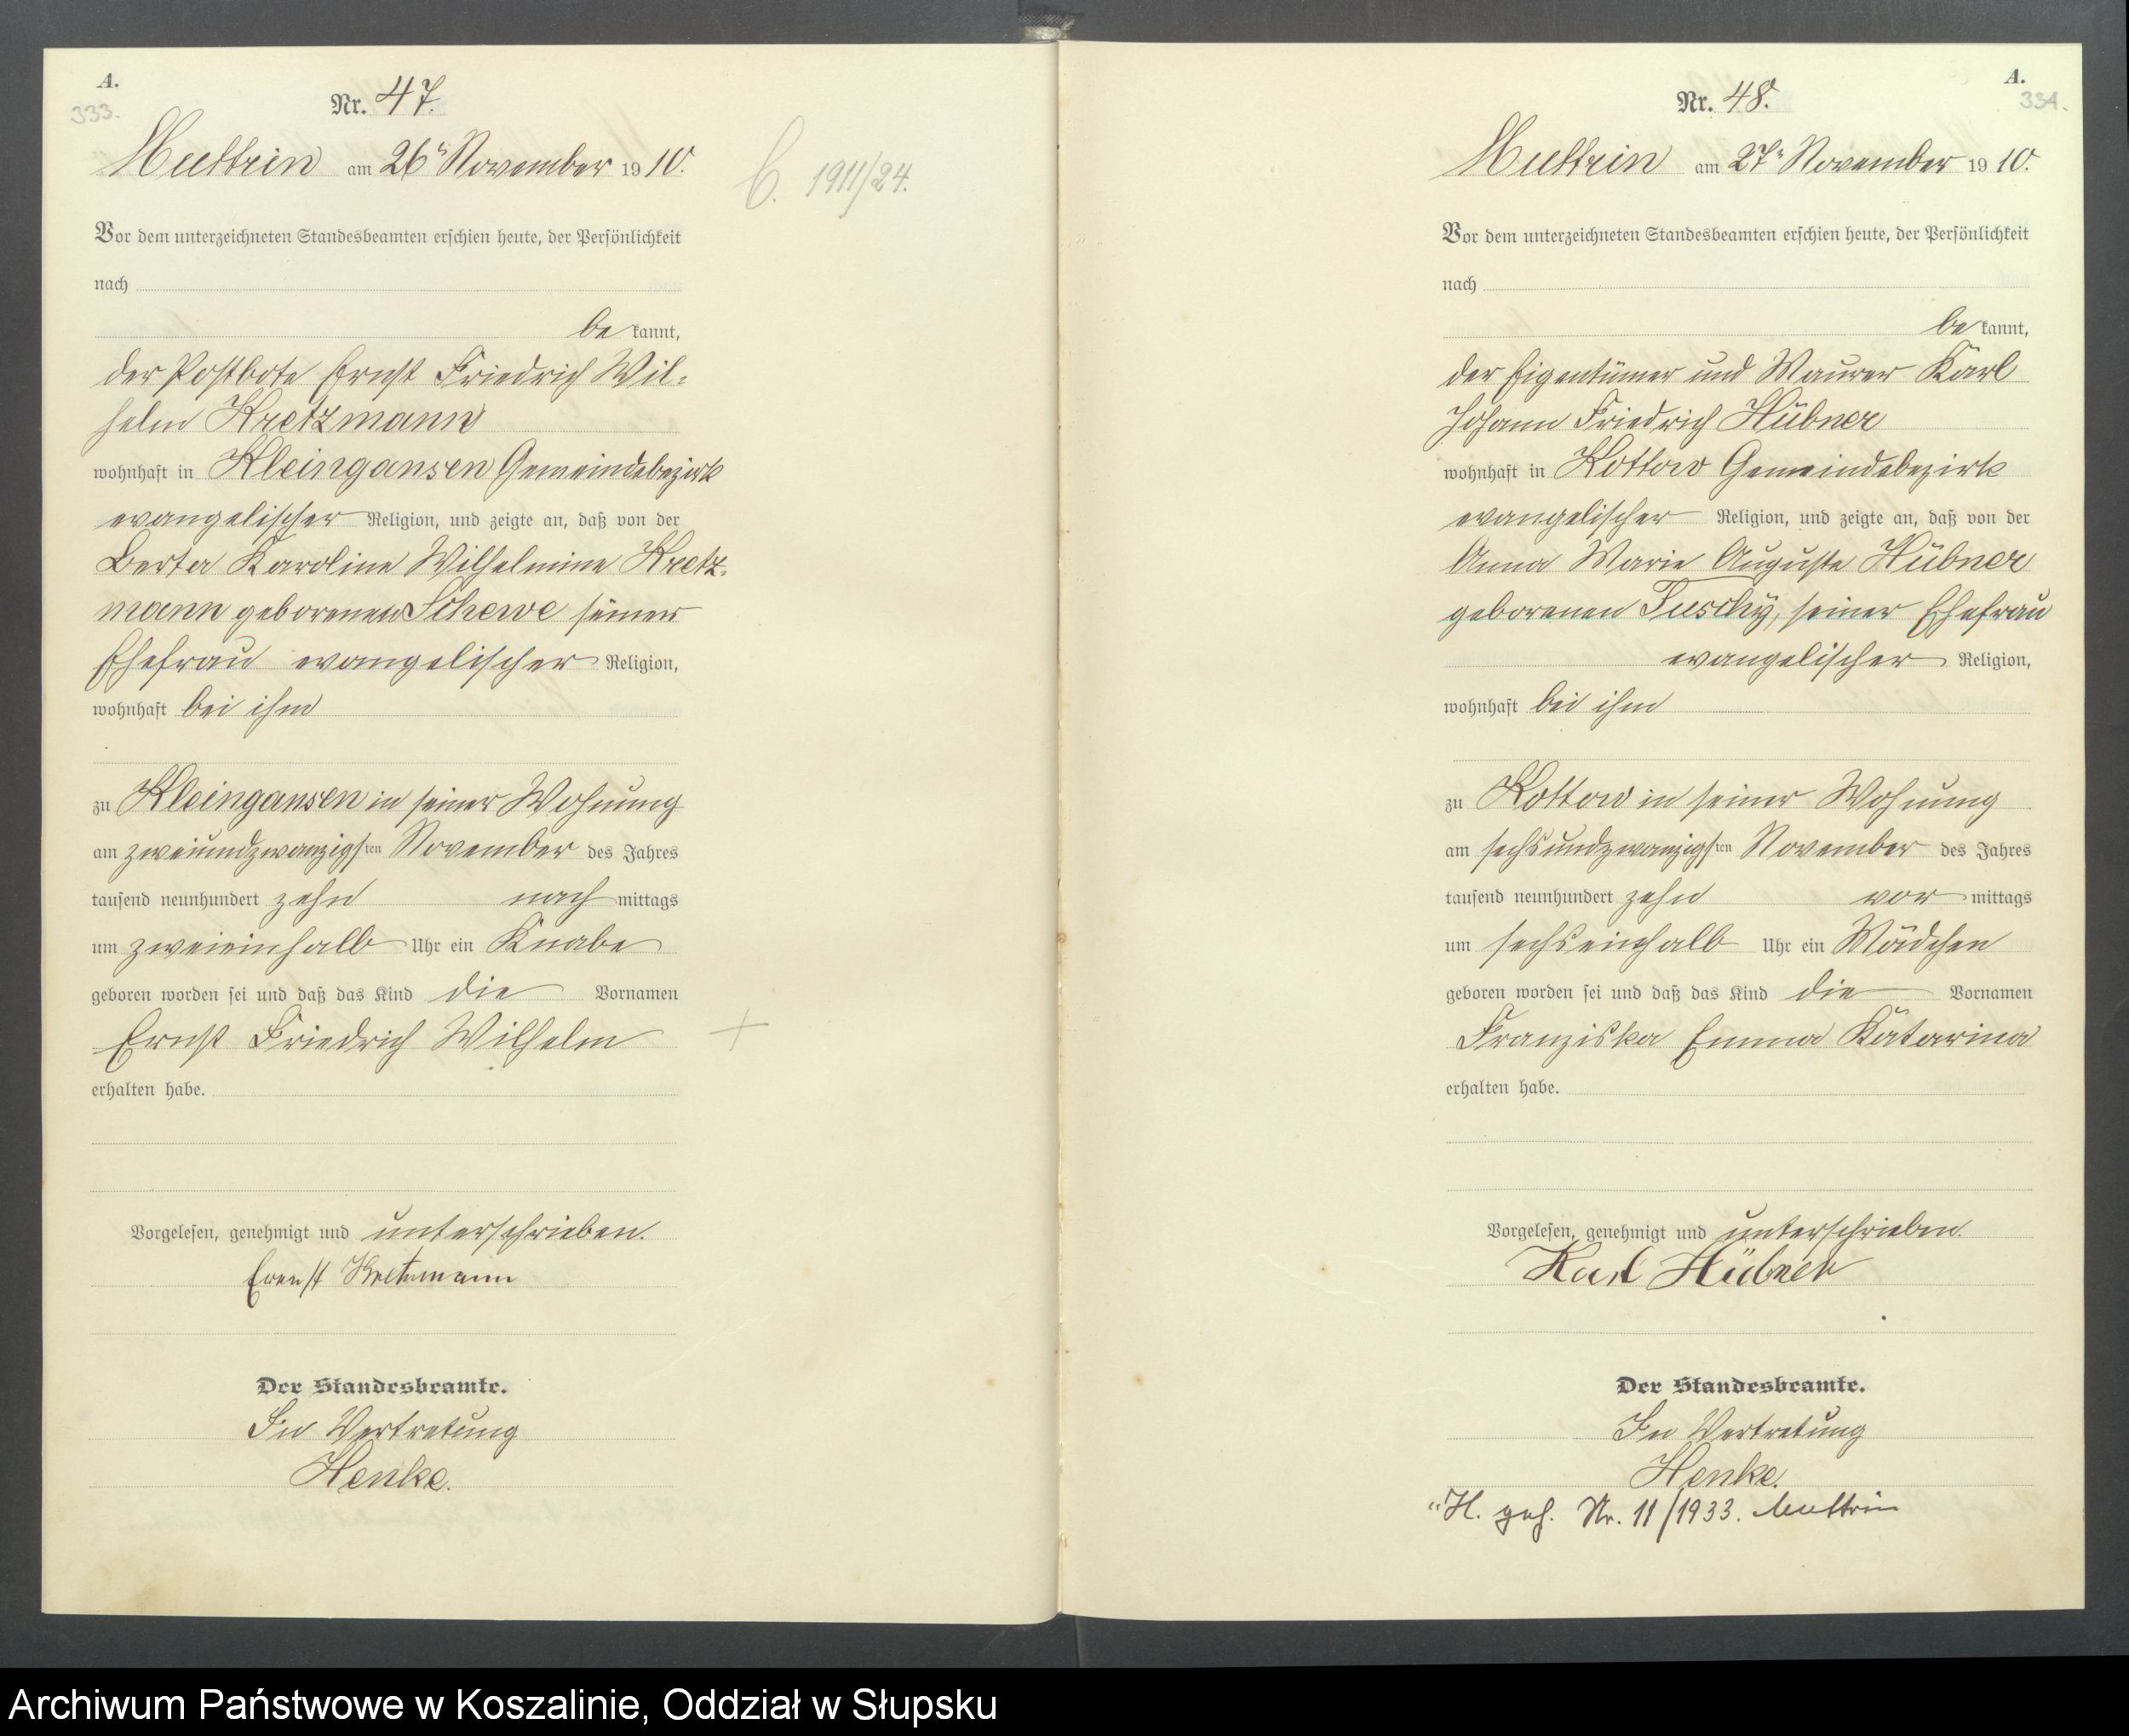 A.
333.
Nr. 47.
Muttrin am 26ⁿ November 1910.
C. 1911/24.
Vor dem unterzeichneten Standesbeamten erschien heute, der Persönlichkeit
nach
be kannt,
der Postbote Ernst Friedrich Wil-
helm Kretzmann
wohnhaft in Kleingansen Gemeindebezirk
evangelischer Religion, und zeigte an, daß von der
Berta Karoline Wilhelmine Kretz-
mann geborenen Schewe seiner
Ehefrau evangelischer Religion,
wohnhaft bei ihm
zu Kleingansen in seiner Wohnung
am zweiundzwanzigsten November des Jahres
tausend neunhundert zehn nach mittags
um zweieinhalb Uhr ein Knabe
geboren worden sei und daß das Kind die Vornamen
Ernst Friedrich Wilhelm
erhalten habe.
Vorgelesen, genehmigt und unterschrieben.
Erenst Kretzmann
Der Standesbeamte.
In Vertretung
Henke.
A.
334.
Nr. 48.
Muttrin am 27ⁿ November 1910.
Vor dem unterzeichneten Standesbeamten erschien heute, der Persönlichkeit
nach
be kannt,
der Eigentümer und Maurer Karl
Johann Friedrich Hübner
wohnhaft in Kottow Gemeindebezirk
evangelischer Religion, und zeigte an, daß von der
Anna Marie Auguste Hübner
geborenen Tuschy, seiner Ehefrau
evangelischer Religion,
wohnhaft bei ihm
zu Kottow in seiner Wohnung
am sechsundzwanzigsten November des Jahres
tausend neunhundert zehn vor mittags
um sechseinhalb Uhr ein Mädchen
geboren worden sei und daß das Kind die Vornamen
Franziska Emma Katarina
erhalten habe.
Vorgelesen, genehmigt und unterschrieben.
Karl Hübner
Der Standesbeamte.
In Vertretung
Henke.
"H. geh. Nr. 11/1933. Muttrin
Archiwum Państwowe w Koszalinie, Oddział w Słupsku